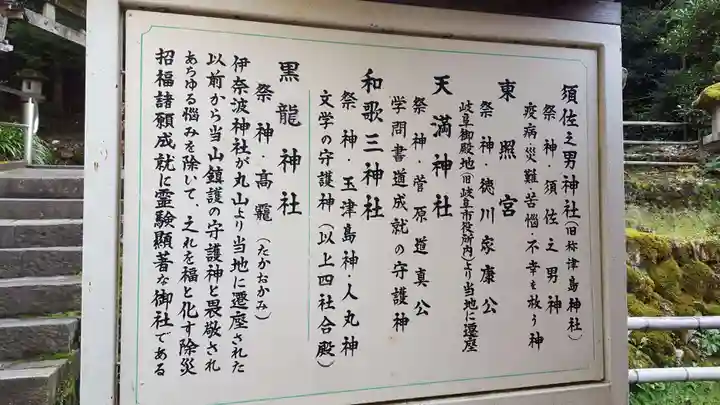 須佐之男神社(旧称津島神社)
祭神・須佐之男神
疫病・災難苦悩・不幸を救う神
東照宮
祭神・徳川家康公
岐阜御殿地(旧岐阜市役所内)より当地に遷座
天満神社
祭神・菅原道真公
学問書道成就の守護神
和歌三神社
祭神・玉津島神・人丸神
文学の守護神(以上四社合殿)
黒龍神社
祭神・高龗(たかおかみ)
伊奈波神社が丸山より当地に遷座された
以前から当山鎮護の守護神と畏敬され
あらゆる悩みを除いて、之れを福と化す除災
招福諸願成就に霊験顕著な御社である